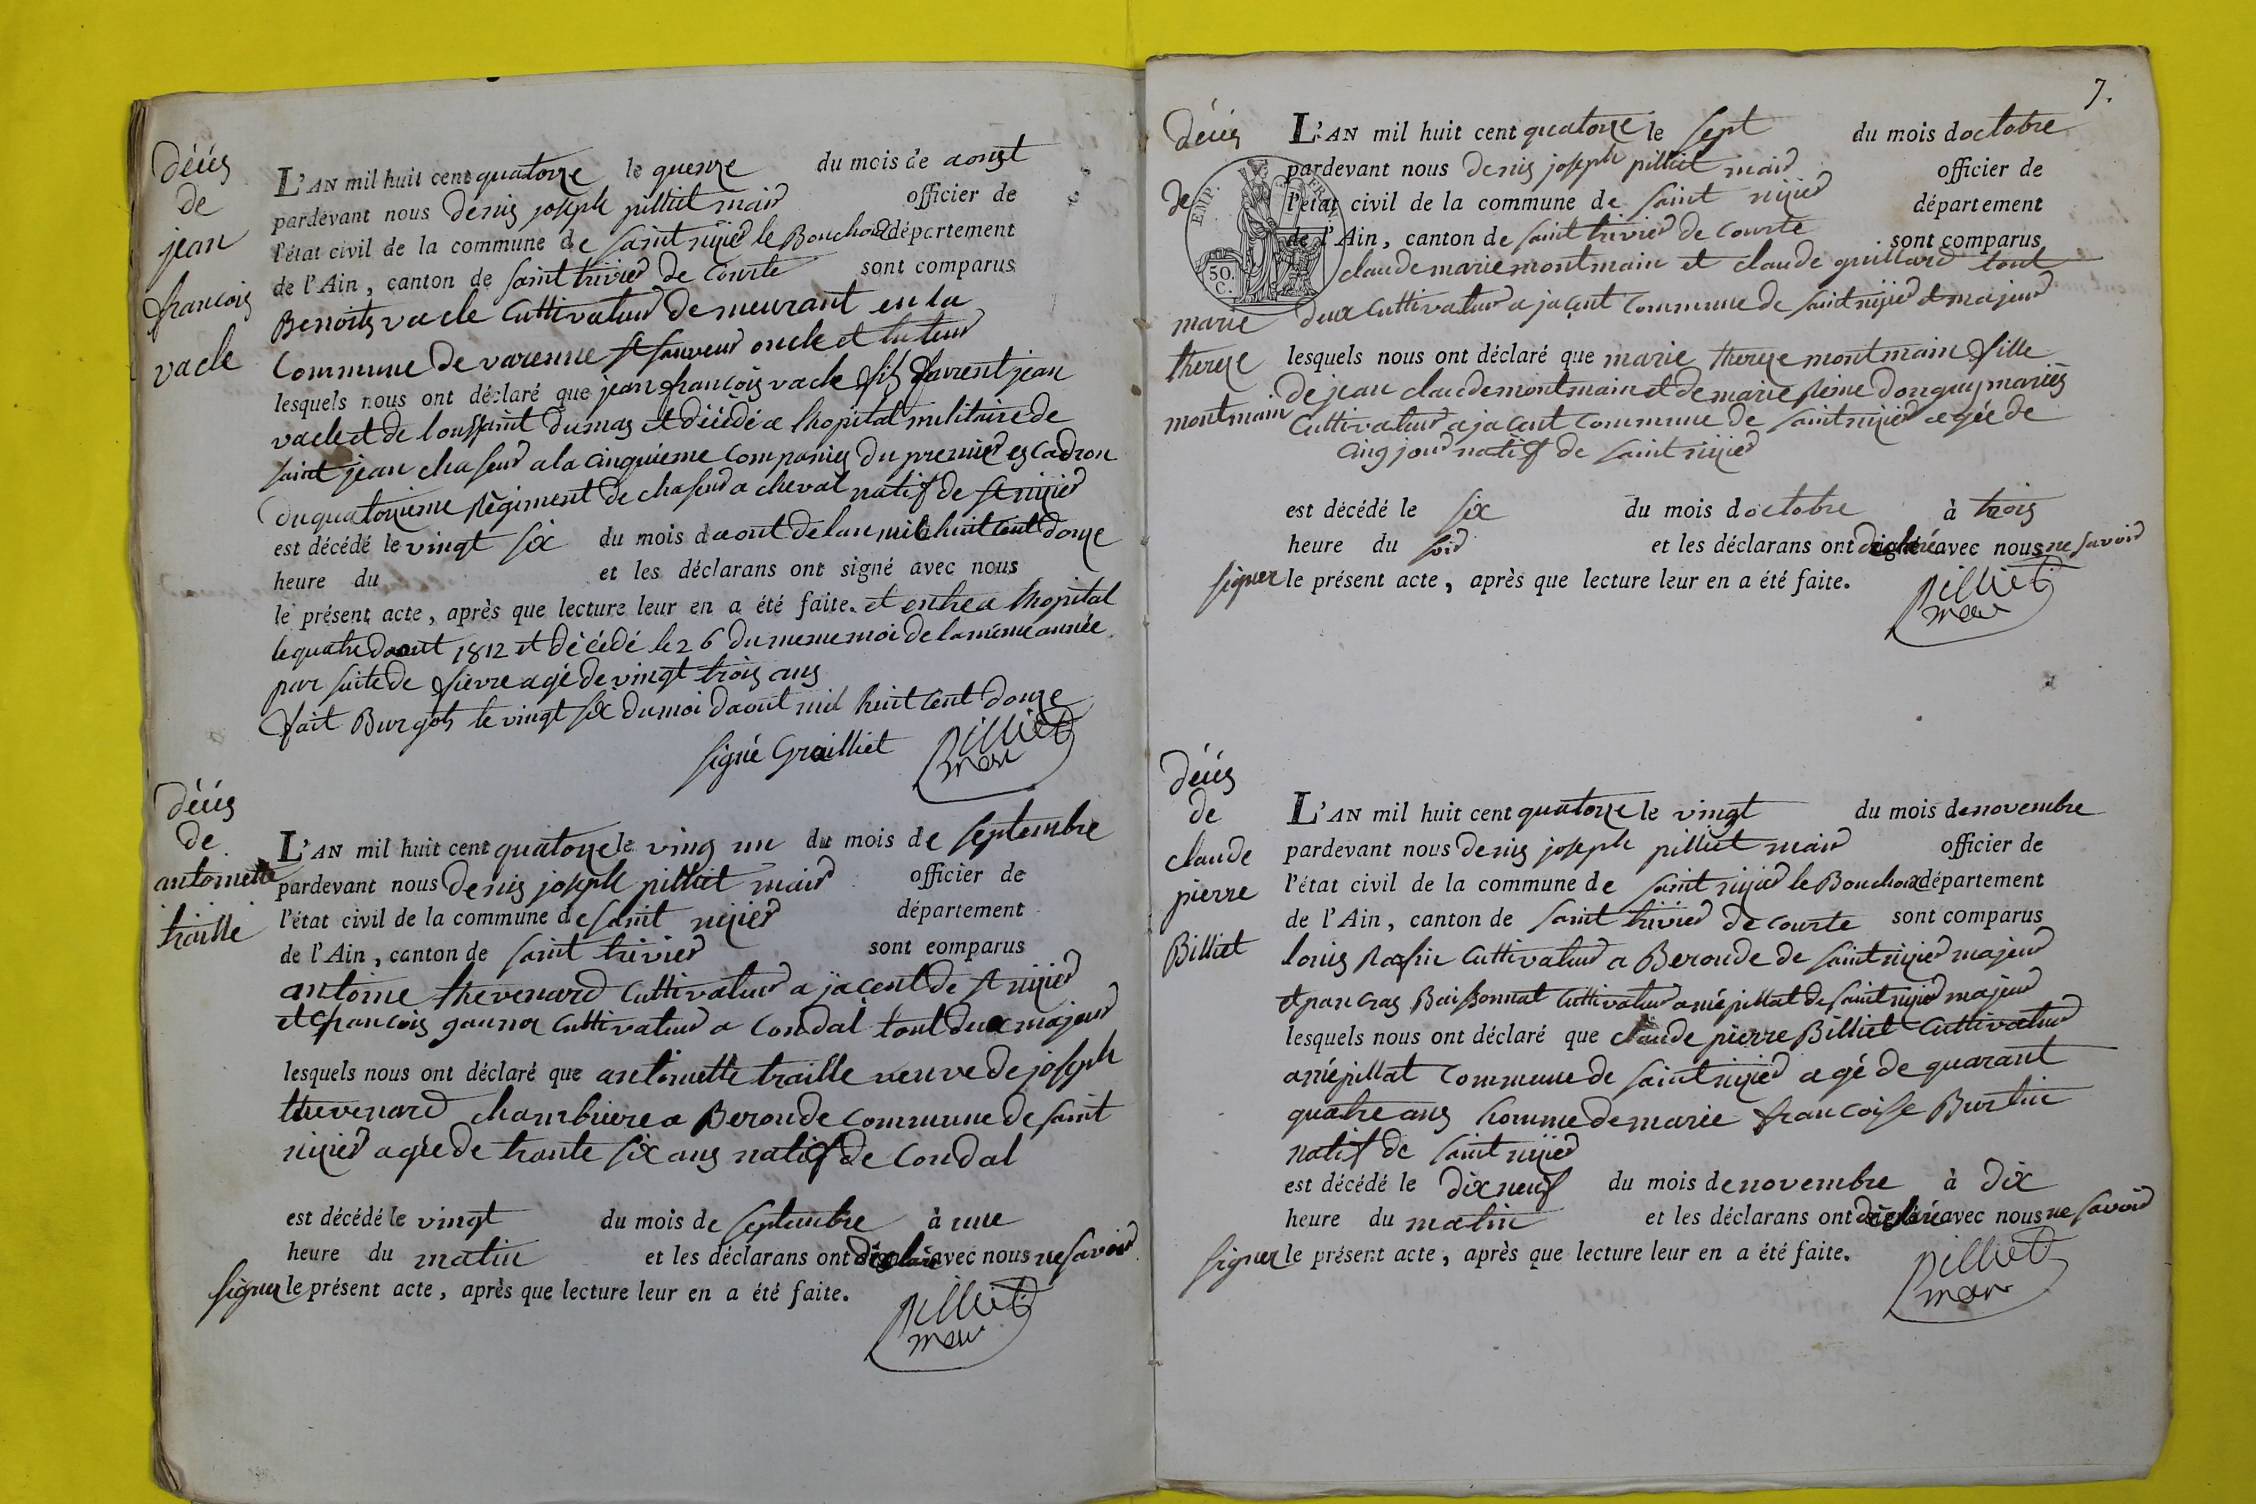 décés
de
jean
francois
vacle
L'AN mil huit cent quatorze le quenze du mois de aoust
pardevant nous denis joseph pilliet mair officier de
l'état civil de la commune de saint nizier le Bouchoux département
de l'Ain, canton de saint trivier de Courte sont comparus
Benoits vacle Cultivateur demeurant en la
Commune de varenne st sauveur oncle et tuteur
lesquels nous ont déclaré que jean francois vacle fils
jean
vacle et de dumas et décédé a lhopital militaire de
saint jean chaseur a la cinquieme Companies du premier escadron
du quatorzieme Régiment de chaseur a cheval natif de st nizier
est décédé le vingt six du mois daout de lan mil huit cent douze
heure du et les déclarans ont signé avec nous
le présent acte, après que lecture leur en a été faite. et entre a lhopital
le quatre daout 1812 et décédé le 26 du meme moi de la meme année
par suite de fievre agé de vingt trois ans
fait Burgos le vingt six du moi daout mil huit cent douze
signé Grailliet pilliet
mair
décés
de
antoinette
traille
L'AN mil huit cent quatorze le ving un du mois de septembre
pardevant nous denis joseph pilliet mair officier de
l'état civil de la commune de saint nizier département
de l'Ain, canton de saint trivier sont comparus
antoine thevenard Cultivateur a jacent de st nizier
et francois Cultivateur a Condal tout deux majeur
lesquels nous ont déclaré que antoinette traille veuve de joseph
thevenard chambriere a Beronde commune de saint
nizier agée de trante six ans natif de Condal
est décédé le vingt du mois de septembre à une
heure du matin et les déclarans ont déclaré avec nous ne savoir
signer le présent acte, après que lecture leur en a été faite.
pilliet
mair
7.
décés
de
marie
thereze
montmain
EMP. FRAN.
50.
C.
L'AN mil huit cent quatorze le sept du mois doctobre
pardevant nous denis joseph pilliet mair officier de
l'état civil de la commune de saint nizier département
de l'Ain, canton de saint trivier de Courte sont comparus
claude marie montmain et claude guillard tout
deux Cultivateur a jacent Commune de saint nizier et majeur
lesquels nous ont déclaré que marie thereze montmain fille
de jean claude montmain et de marie Reine donguy mariés
Cultivateur a jacent commune de saint nizier agée de
cinq jour natif de saint nizier
est décédé le six du mois doctobre à trois
heure du soir et les déclarans ont déclaré avec nous ne savoir
signer le présent acte, après que lecture leur en a été faite.
pilliet
mair
décés
de
claude
pierre
Billiet
L'AN mil huit cent quatorze le vingt du mois de novembre
pardevant nous denis joseph pilliet mair officier de
l'état civil de la commune de saint nizier le Bouchoux département
de l'Ain, canton de saint trivier de courte sont comparus
louis Cultivateur a Beronde de saint nizier majeur
et pancras Baissonnat Cultivateur a népillat de saint nizier majeur
lesquels nous ont déclaré que claude pierre Billiet Cultivateur
a népillat Commune de saint nizier agé de quarant
quatre ans homme de marie francoisse Burtin
natif de saint nizier
est décédé le dix neuf du mois de novembre à dix
heure du matin et les déclarans ont déclaré avec nous ne savoir
signer le présent acte, après que lecture leur en a été faite.
pilliet
mair